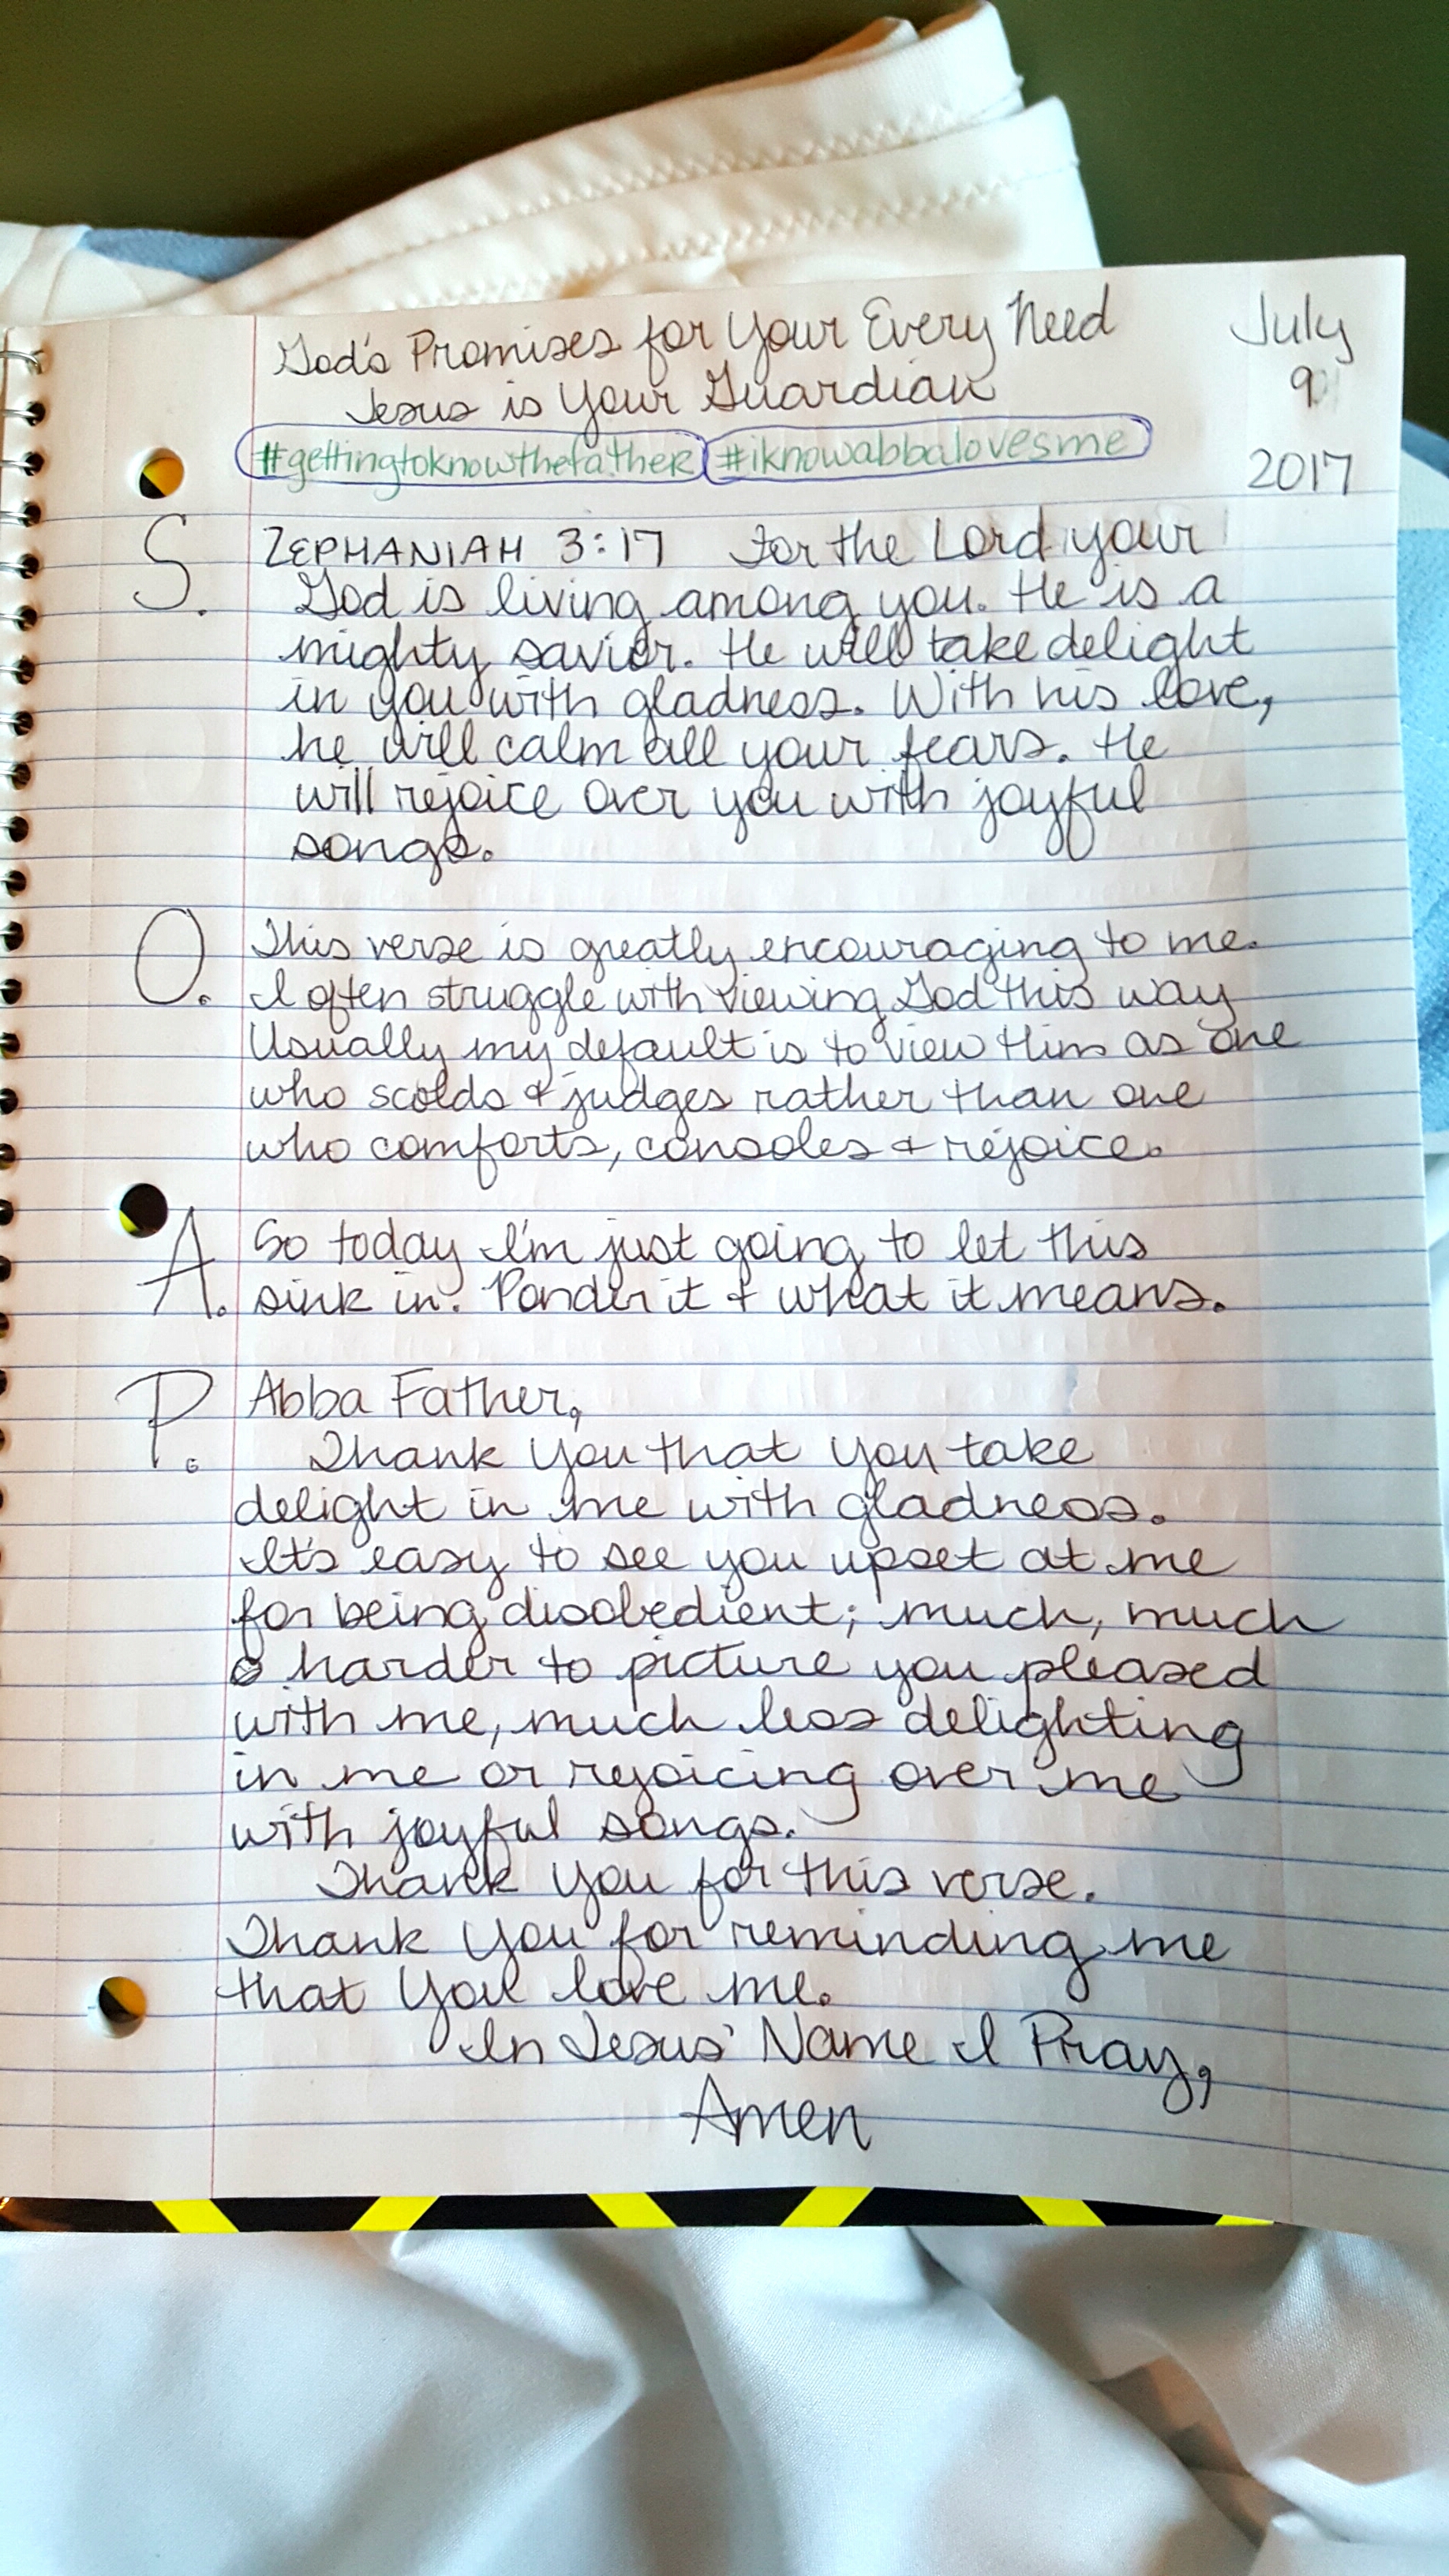 God's Promises for Your Every Need
Jesus is Your Guardian
July
9
2017
#gettingtoknowthefather #iknowabbalovesme
S. ZEPHANIAH 3:17 For the Lord your
God is living among you. He is a
mighty savior. He will take delight
in you with gladness. With his love,
he will calm all your fears. He
will rejoice over you with joyful
songs.
O. This verse is greatly encouraging to me.
I often struggle with viewing God this way
Usually my default is to view Him as one
who scolds & judges rather than one
who comforts, consoles & rejoice.
A. So today I'm just going to let this
sink in. Ponder it & what it means.
P. Abba Father,
Thank You that You take
delight in me with gladness.
It's easy to see you upset at me
for being disobedient; much, much
harder to picture you pleased
with me, much less delighting
in me or rejoicing over me
with joyful songs.
Thank You for this verse.
Thank You for reminding me
that You love me.
In Jesus' Name I Pray,
Amen